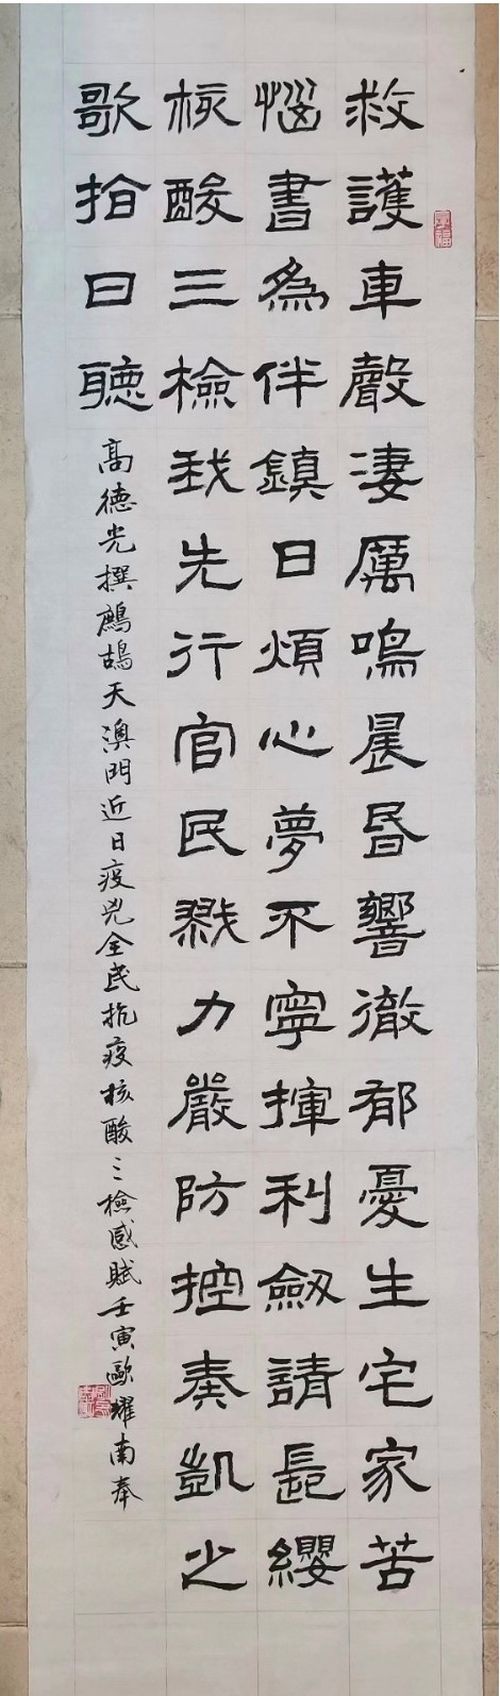 救護車聲淒厲鳴晨昏響徹郁憂生宅家苦
惱書為伴鎮日煩心夢不寧揮利劔請長纓
核酸三檢我先行官民戮力嚴防控奏凱之
歌拾日聽
高德光撰鷓鴣天澳門近日疫兇全民抗疫核酸三檢感賦壬寅歐耀南奉